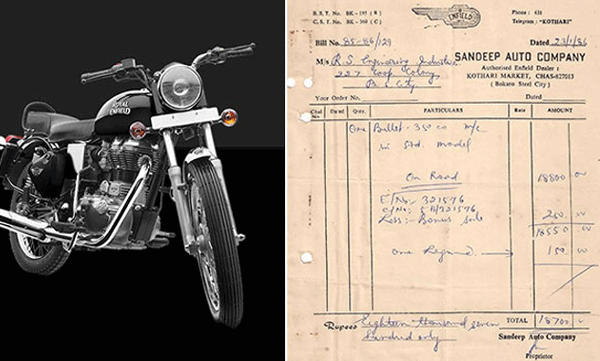 ROYAL
ENFIELD
B. S. T. No. BK-195 (R)
C. S. T. No. BK-360 (C)
ENFIELD
Phone : 631
Telegram : "KOTHARI"
Bill No. 85-86/129
Dated 23/1/86
M/s R. S. Engineering Industries
227 Coop Colony
B. S. City
SANDEEP AUTO COMPANY
Authorised Enfield Dealer :
KOTHARI MARKET, CHAS-827013
( Bokaro Steel City )
Your Order No.
Dated
Chal No Dated Qnty. PARTICULARS Rate AMOUNT
One Bullet - 350 cc m/c
in Std. model
On Road 18800 00
E/No:- 321576
C/No:- 5B/321576
Less:- Bonus 250 00
18550 00
One 150 00
TOTAL 18700 00
Rupees Eighteen thousand seven
hundred only
Sandeep Auto Company
Proprietor